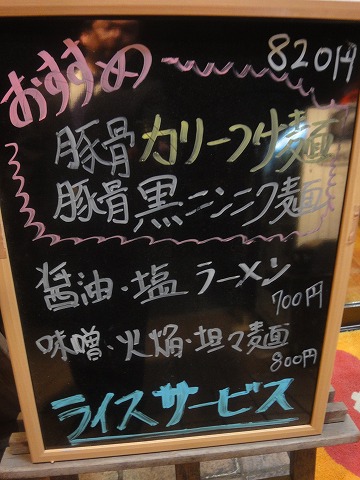 おすすめ 820円
豚骨カリーつけ麺
豚骨黒ニンニク麺
醤油・塩 ラーメン
700円
味噌・火焔・坦々麺
800円
ライスサービス